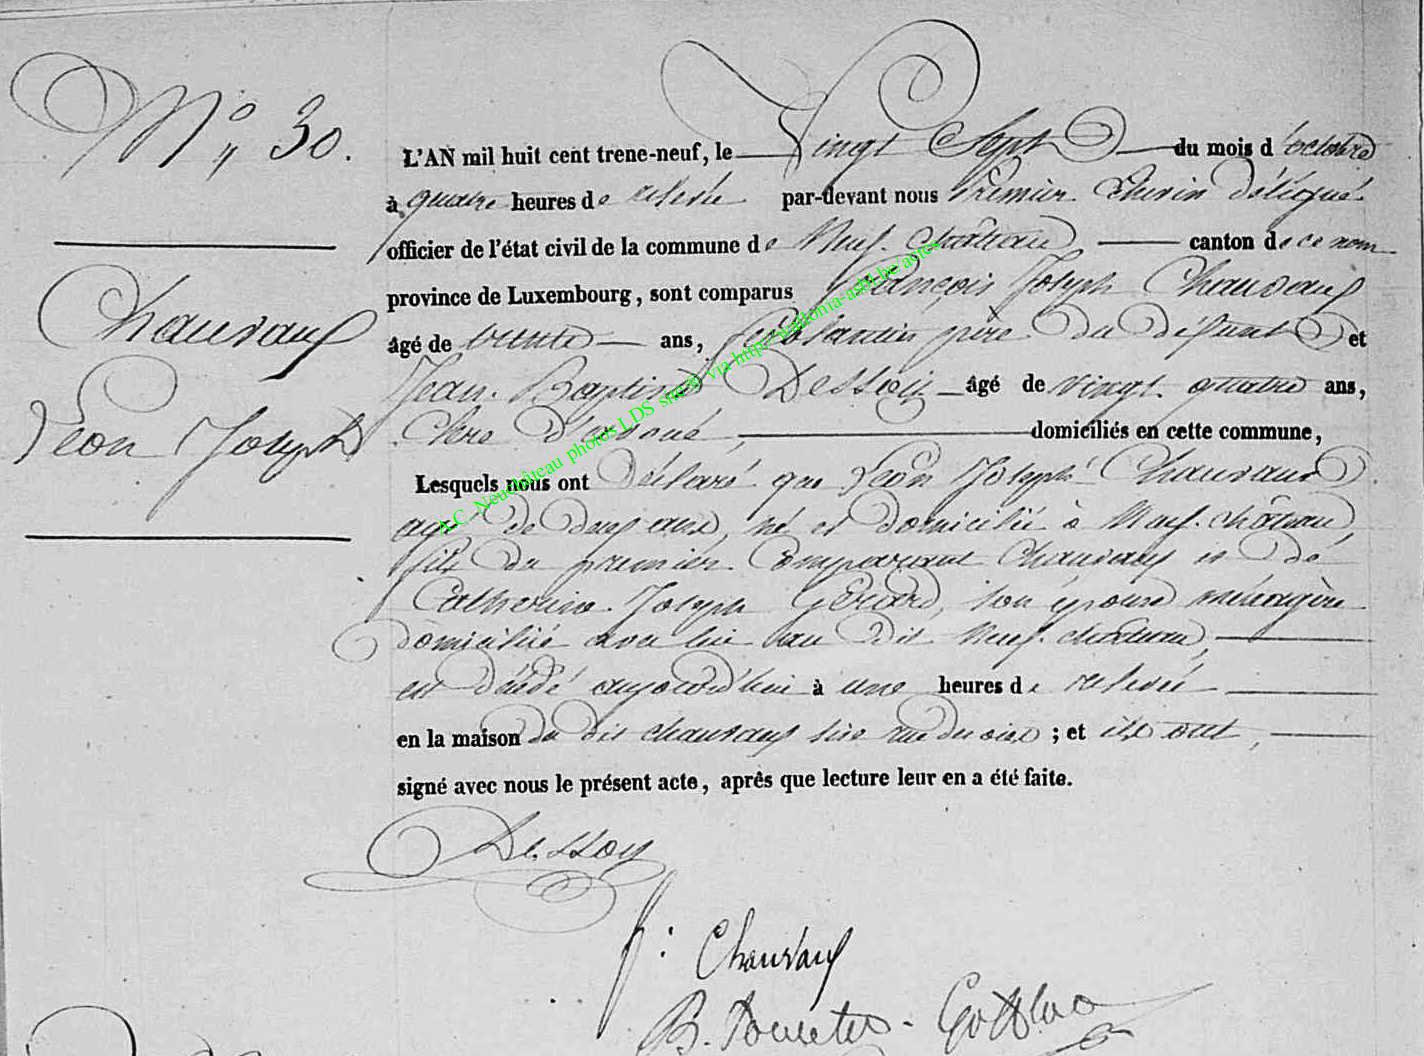 N° 30.
L'AN mil huit cent trene-neuf, le Vingt Sept du mois d'octobre
à quatre heures de relevée par-devant nous Premier Echevin délégué
officier de l'état civil de la commune de Neufchâteau canton de ce nom
province de Luxembourg, sont comparus François Joseph Chauvaux
Chauvaux
âgé de trente ans, père du défunt et
Jean Baptiste Dessoy âgé de vingt quatre ans,
Léon Joseph
Clerc d'avoué domiciliés en cette commune,
Lesquels nous ont déclaré que Léon Joseph Chauvaux
agé de deux ans, né et domicilié à Neufchâteau
fils du premier comparant Chauvaux et de
Catherine Joseph Gérard, son épouse ménagère
domiciliée avec lui au dit Neufchâteau,
est décédé aujourd'hui à une heures de relevée
en la maison du dit Chauvaux sise ; et ils ont,
signé avec nous le présent acte, après que lecture leur en a été faite.
Dessoy
f: Chauvaux
A.C. Neuchâteau photos LDS sur © via http://wallonia-asbl.be/actes